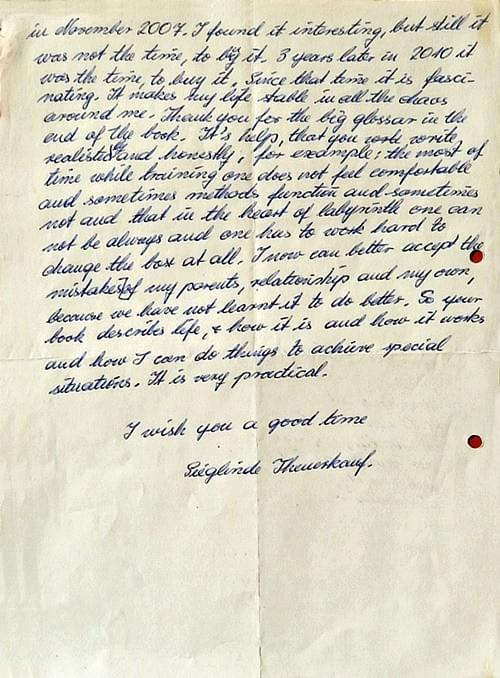 in November 2007. I found it interesting, but still it
was not the time, to by it. 3 years later in 2010 it
was the time, to buy it, Since that time it is fasci-
nating. It makes my life stable in all the chaos
around me. Thank you for the big glossar in the
end of the book. It's help, that you write
realistic and honestly, for example: the most of
time while training one does not feel comfortable
and sometimes methods function and sometimes
not and that in the heart of labyrinth one can
not be always and one has to work hard to
change the box at all. I now can better accept the
mistakes of my parents, relationship and my own,
because we have not learnt it to do better. So your
book describes life, & how it is and how it works
and how I can do things to achieve special
situations. It is very practical.
I wish you a good time
Sieglinde Theuerkauf.